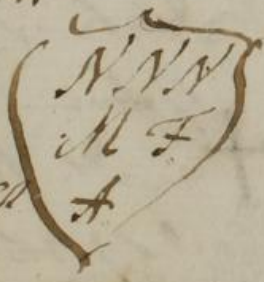 N N N
M F
A